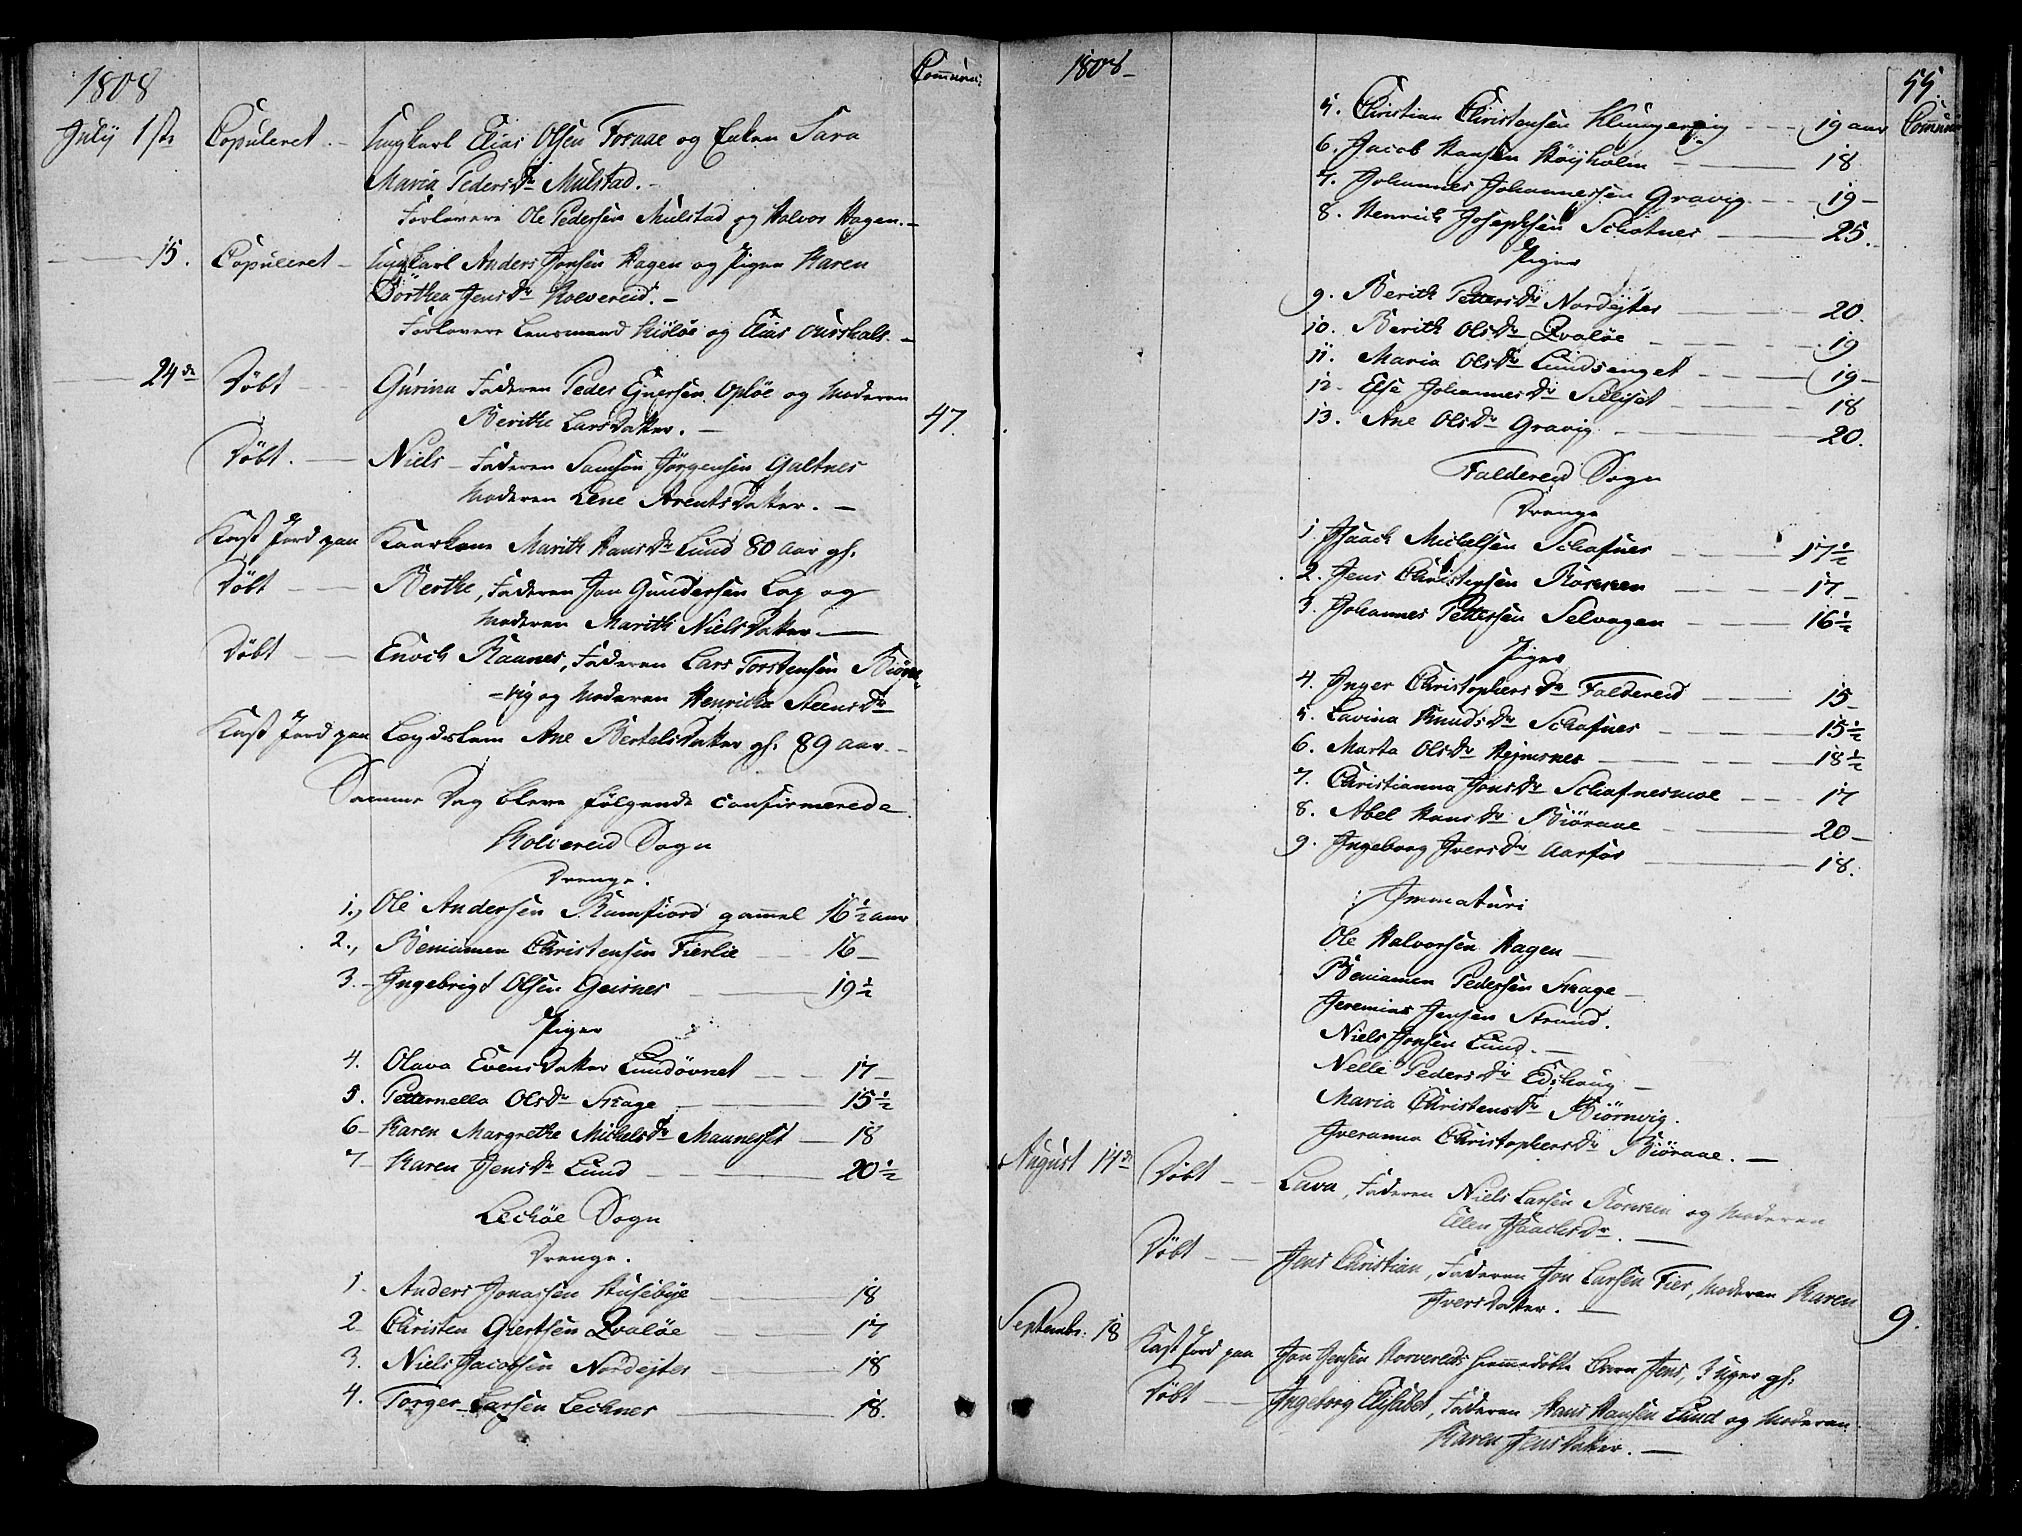 1808
Comunic:
July 1ste Copuleret. – Ungkarl Elias Olsen Foraae og Enken Sara
Maria Peders Dr Mulstad. –
Forlovere Ole Pedersen Mulstad og Halvor Hagen. –
15. Copuleret – Ungkarl Anders Jonsen Hagen og Pigen Karen
Dorthea Jens Dr Kolvereid. –
Forlovere Lensmand Kiöløe og Elias Ourshals. –
24de Døbt – Gurina Faderen Peder Ejnersen Opløe og Moderen
Berithe Lars Datter. – 47.
Døbt. – Niels – Faderen Samson Jørgensen Galtnes
Moderen Lene Arents Datter. –
Kast Jord paa Kaarkone Marith Hans Dr Lund 80 aar gl.
Døbt – Berthe, Faderen Jon Gundersen Lap og
Moderen Marith Niels Datter –
Døbt – Enoch Raanes, Faderen Lars Torstensen Biørn-
-vig og Moderen Henricha Steens Dr
Kast Jord paa Legdslem Ane Bertels Datter gl. 89 aar –
Samme Dag bleve følgende confirmerede
Kolvereid Sogn
Drenge.
1., Ole Andersen Ramfiord gammel 16 1/2 aar
2., Beniamen Christensen Fierlie – 16 –
3. – Ingebrigt Olsen Geisnes – 19 1/2
Piger
4. Olava Evens Datter Lundøvnet – 17 –
5. Petternella Ols Dr Skage – 15 1/2
6 – Karen Margrethe Michels Dr Mauneset – 18
7 – Karen Jens Dr Lund – 20 1/2
Leckøe Sogn
Drenge.
1 – Anders Jonassen Husebye – 18
2 – Christen Giertsen Qvaløe – 17
3. Niels Jacobsen Nordejter – 18
4. Torger Larsen Lechner – 18.
1808 –
55.
Comunic
5. Christian Christensen Klungervig – 19 aar
6. Jacob Hansen Høyholm – 18
7. Johannes Johannessen Gravig – 19 –
8. Henrich Josephsen Schotnes – 25. –
Piger
9. Berith Petters Dr Nordejter – 20.
10. Berith Ols Dr Qvaløe – 19
11. Maria Ols Dr Lundsenget – 19 –
12 – Else Johannes Dr Selliset – 18
13. Ane Ols Dr Gravig – 20.
Foldereid Sogn
Drenge
1 Isaach Michelsen Schafnes – 17 1/2
2. Jens Christensen Rosseen – 17 –
3. Johannes Pettersen Selvogen – 16 1/2
Piger
4. Inger Christophers Dr Foldereid – 15 –
5. Lavina Knuds Dr Schafnes – 15 1/2
6. Marta Ols Dr Hejmsnes – 18 1/2
7. Christianna Jons Dr Schafnesmoe – 17
8. Abel Hans Dr Biøraae – 20 –
9. Ingeborg Ivers Dr Aarfor – 18.
Immaturi
Ole Halvorsen Hagen –
Beniamen Pedersen Skage –
Jeremias Jensen Strand.
Niels Jonsen Lund. –
Nelle Peders Dr Edshoug –
Maria Christens Dr Biørnvig.
Iveranna Christophers Dr Biøraae. –
August 14de Døbt – Lava, Faderen Niels Larsen Rosseen og Moderen
Ellen Isaachs Dr. –
Døbt – Jens Christian, Faderen Jon Larsen Fier, Moderen Karen
Ivers Datter. – 9.
Septembr. 18 Kast Jord paa Jon Jensen Horvereids hiemmedøbte Barn Jens, 3 uger gl.
Døbt – Ingeborg Elisabet, Faderen Hans Hansen Lund og Moderen
Karen Jens Datter. –